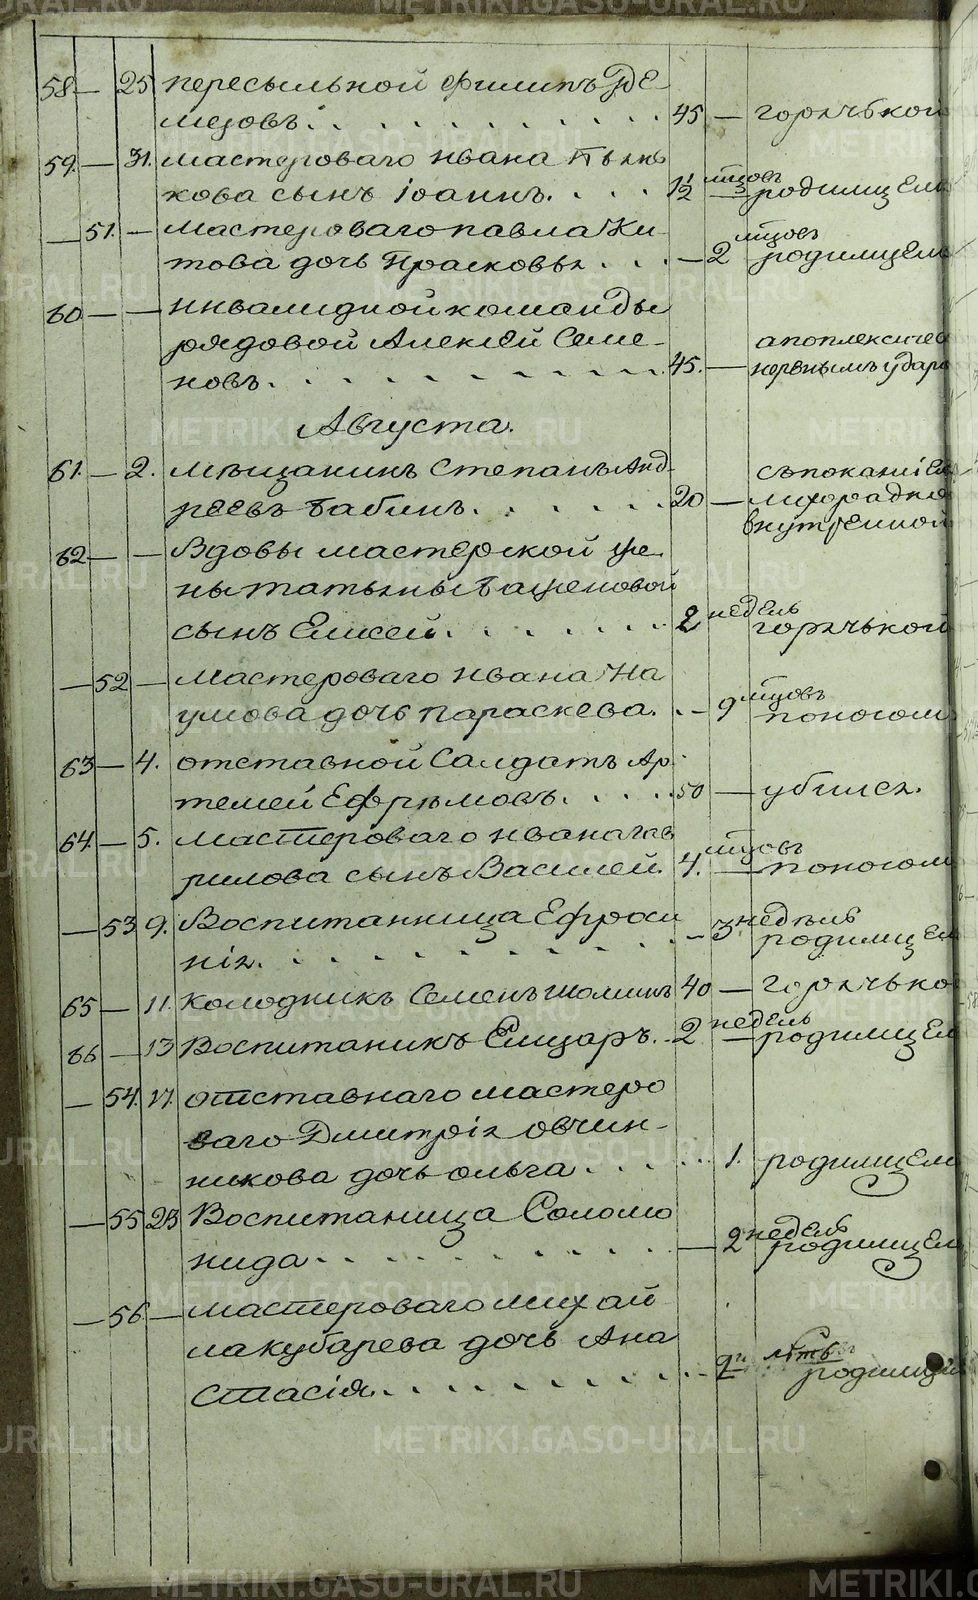 58 — 25 пересыльной Филипъ Де-
мидовъ . . . 45 — горячькой
59. — 31. мастероваго Ивана Пьян-
кова сынъ Іоаннъ. . . . 1½ мцовъ — родимцем
— 51. — мастероваго Павла Ки-
това дочь Прасковья . . . — 2 мцовъ родимцем
60 — — инвалидной команды
рядовой Алексей Семе- апоплексичес
новъ. . . . 45. — нервнымъ ударо
Августа.
61. — 2. мещанинъ Степанъ Анд- съпоканіем
реевъ Бабинъ. . . . 20 — лихорадкой
внутренной
62 — — Вдовы мастерской же-
ны татьяны Баженовой
сынъ Елисей. . . . 2 недель горячькой
— 52 — Мастероваго Ивана На
умова дочь Параскева. . — 9 мцовъ поносом
63 — 4. отставной Салдатъ Ар-
темей Ефремовъ. . . . 50 — убился.
64. — 5. мастероваго Ивана Гав
рилова сынъ Василей. 4. мцовъ — поносом
— 53 9. Воспитанница Ефроси
нія. . . . — 3 недель родимцем
65 — 11. колодникъ Семенъ Шоминъ 40 — горячько
66 — 13 Воспитаникъ Елизаръ. . 2 недель — родимцем
— 54. 17. отставнаго мастеро
ваго Дмитрія Овчин-
никова дочь Ольга . . . 1. родимцем
— 55 23 Воспитаница Соломо
нида . . . — 2 недель родимцем
— 56 — мастероваго Михай
ла Кубарева дочь Ана
стасія. . . . 2 летъ родимцем
METRIKI.GASO-URAL.RU